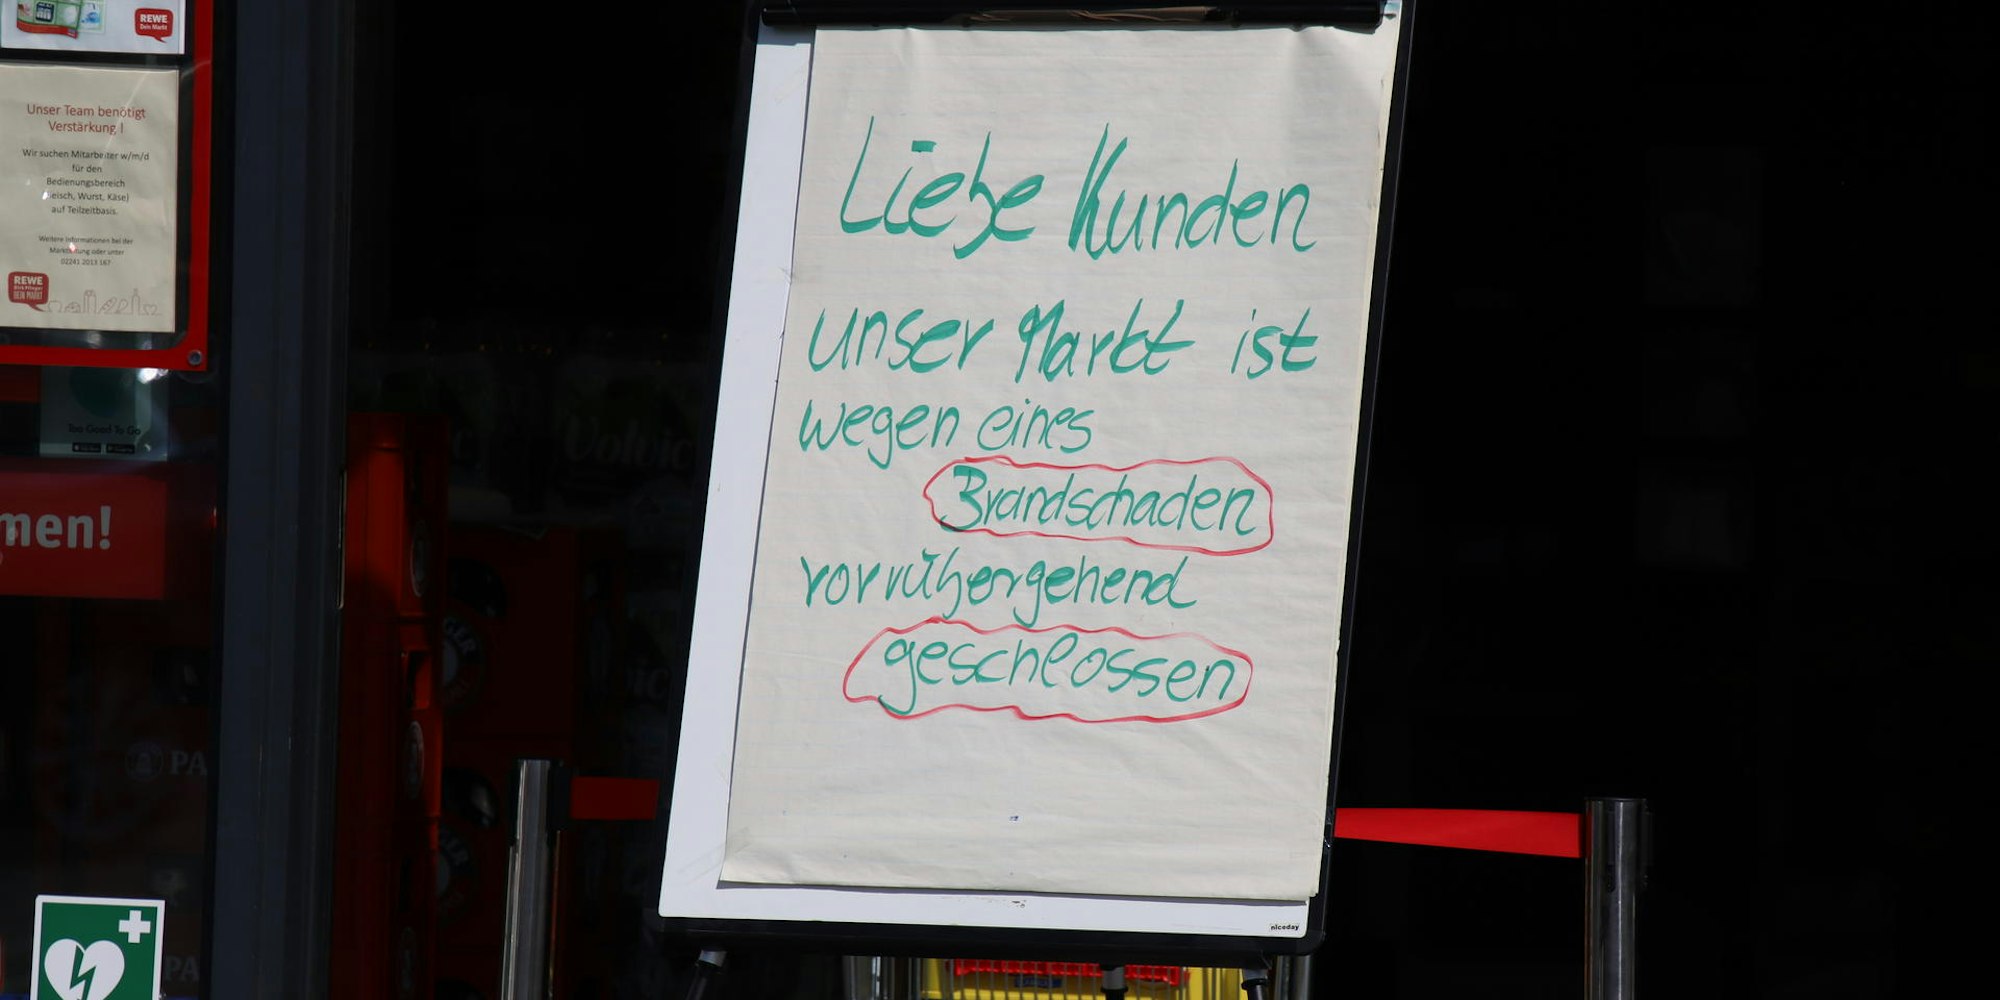 REWE
Dein Markt
Unser Team benötigt
Verstärkung !
Wir suchen Mitarbeiter w/m/d
für den
Bedienungsbereich
Wurst, Käse)
auf Teilzeitbasis.
Weitere Informationen bei der
oder unter
02241 2013 167
REWE
DEIN MARKT
Too Good To Go
men!
PA
PA
Volvic
Liebe Kunden
unser Markt ist
wegen eines
Brandschaden
vorrübergehend
geschlossen
niceday